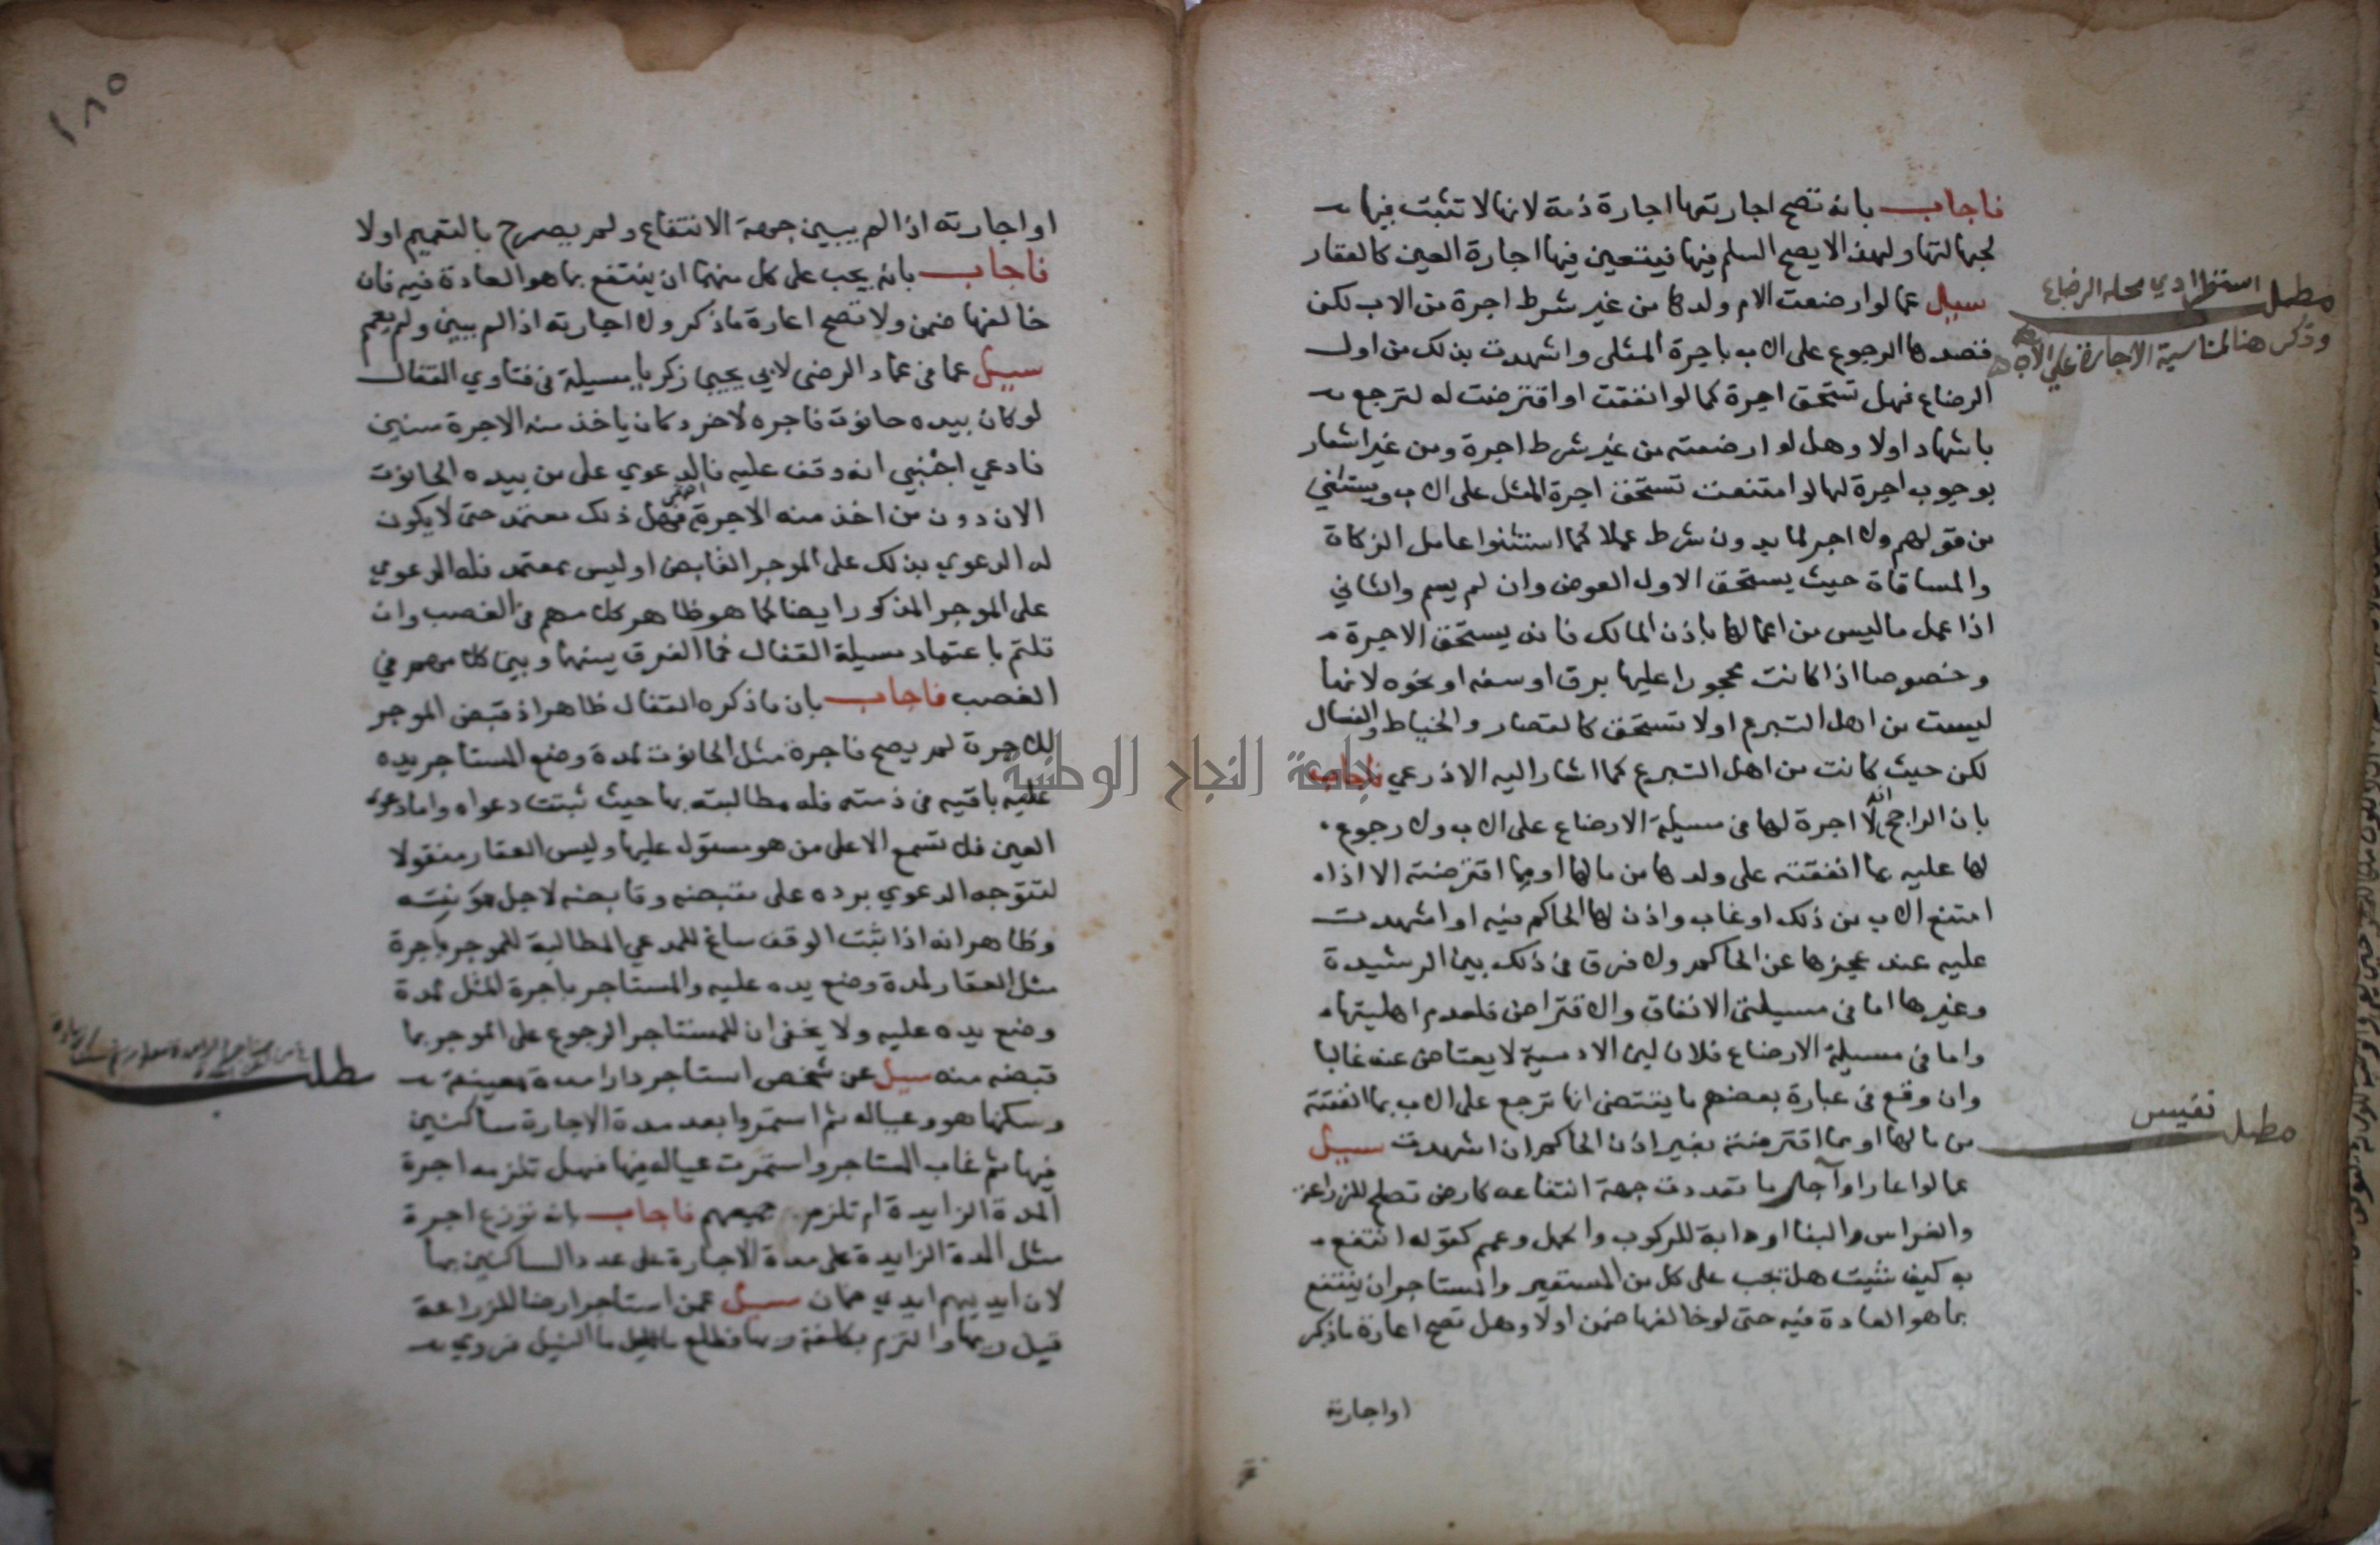 فاجاب بانه تصح اجارتها اجارة ذمة لانها لا تثبت فيها
لجهالتها ولهذا لا يصح السلم فيها فيتعين فيها اجارة العين كالعقار
سيل عما لو ارضعت الام ولدها من غير شرط اجرة من الاب لكن
قصدها الرجوع على الاب باجرة المثلى واشهدت بذلك من اول
الرضاع فهل تستحق اجرة كما لو انفقت او اقترضت له لترجع
باشهاد اولا وهل لو ارضعته من غير شرط اجرة ومن غير اشعار
بوجوب اجرة لها لو امتنعت تستحق اجرة المثل على الاب ويستثنى
من قولهم ولا اجر لما بدون شرط عملا كما استثنوا عامل الزكاة
والمساقاة حيث يستحق الاول العوض وان لم يسم والثاني
اذا عمل ما ليس من اعمالها باذن المالك فانه يستحق الاجرة
وخصوصا اذا كانت محجورا عليها برق او سفه او نحوه لانها
ليست من اهل التبرع اولا تستحق كالقصار والخياط والغسال
لكن حيث كانت من اهل التبرع كما اشار اليه الاذرعي فاجاب
بان الراجح انه لا اجرة لها في مسيلة الارضاع على الاب ولا رجوع
لها عليه بما انفقته على ولدها من مالها او بما اقترضته الا اذا
امتنع الاب من ذلك او غاب واذن لها الحاكم فيه او اشهدت
عليه عند عجزها عن الحاكم ولا فرق في ذلك بين الرشيدة
وغيرها اما في مسيلتي الانفاق والاقتراض فلعدم اهليتها
واما في مسيلة الارضاع فلان لبن الادمية لا يعتاض عنه غالبا
وان وقع في عبارة بعضهم ما يقتضي انها ترجع على الاب بما انفقته
من مالها او بما اقترضته بغير اذن الحاكم ان اشهدت سيل
عما لو اعار او آجر ما تعددت جهة انتفاعه كارض تصلح للزراعة
والغراس والبنا او دابة للركوب والحمل وعمم كقوله انتفع
به كيف شئت هل يجب على كل من المستعير والمستاجر ان ينتفع
بما هو العادة فيه حتى لو خالفها ضمن اولا وهل تصح اعارة ما ذكر
او اجارته
مطلب استطرادي محله الرضاع
وذكر هنا لمناسبة الاجارة على الاب
مطلب نفيس
١٨٥
او اجارته اذا لم يبين جهة الانتفاع ولم يصرح بالتعميم اولا
فاجاب بانه يجب على كل منهما ان ينتفع بما هو العادة فيه فان
خالفها ضمن ولا تصح اعارة ما ذكر ولا اجارته اذا لم يبين ولم يعمم
سيل عما في عماد الرضى لابي يحيى زكريا مسيلة في فتاوي القفال
لو كان بيده حانوت فاجره لاخر وكان ياخذ منه الاجرة سنين
فادعي اجنبي انه وقف عليه فالدعوي على من بيده الحانوت
الان دون من اخذ منه الاجرة فهل ذلك معتمد حتى لا يكون
له الدعوي بذلك على الموجر القابض او ليس بمعتمد فله الدعوي
على الموجر المذكور ايضا كما هو ظاهر كلامهم في الغصب وان
قلتم باعتماد مسيلة القفال فما الفرق بينها وبين كلامهم في
الغصب فاجاب بان ما ذكره القفال ظاهر اذ قبض الموجر
للاجرة لم يصح فاجرة مثل الحانوت لمدة وضع المستاجر يده
عليه باقيه في ذمته فله مطالبته بها حيث ثبتت دعواه واما دعوى
العين فلا تسمع الا على من هو مستول عليها وليس العقار منقولا
لتتوجه الدعوي برده على مقبضه وقابضه لاجل مؤنته
وظاهر انه اذا ثبت الوقف ساغ للمدعي المطالبة للموجر باجرة
مثل العقار لمدة وضع يده عليه والمستاجر باجرة المثل لمدة
وضع يده عليه ولا يخفى ان للمستاجر الرجوع على الموجر بما
قبضه منه سيل عن شخص استاجر دارا مدة معينة
وسكنها هو وعياله ثم استمروا بعد مدة الاجارة ساكنين
فيها ثم غاب المستاجر واستمرت عياله فيها فهل تلزمه اجرة
المدة الزايدة ام تلزم جميعهم فاجاب بانه توزع اجرة
مثل المدة الزايدة على مدة الاجارة على عدد الساكنين بها
لان ايديهم ايدي ضمان سيل عمن استاجر ارضا للزراعة
قبل ريها والتزم
مطلب
جامعة النجاح الوطنية